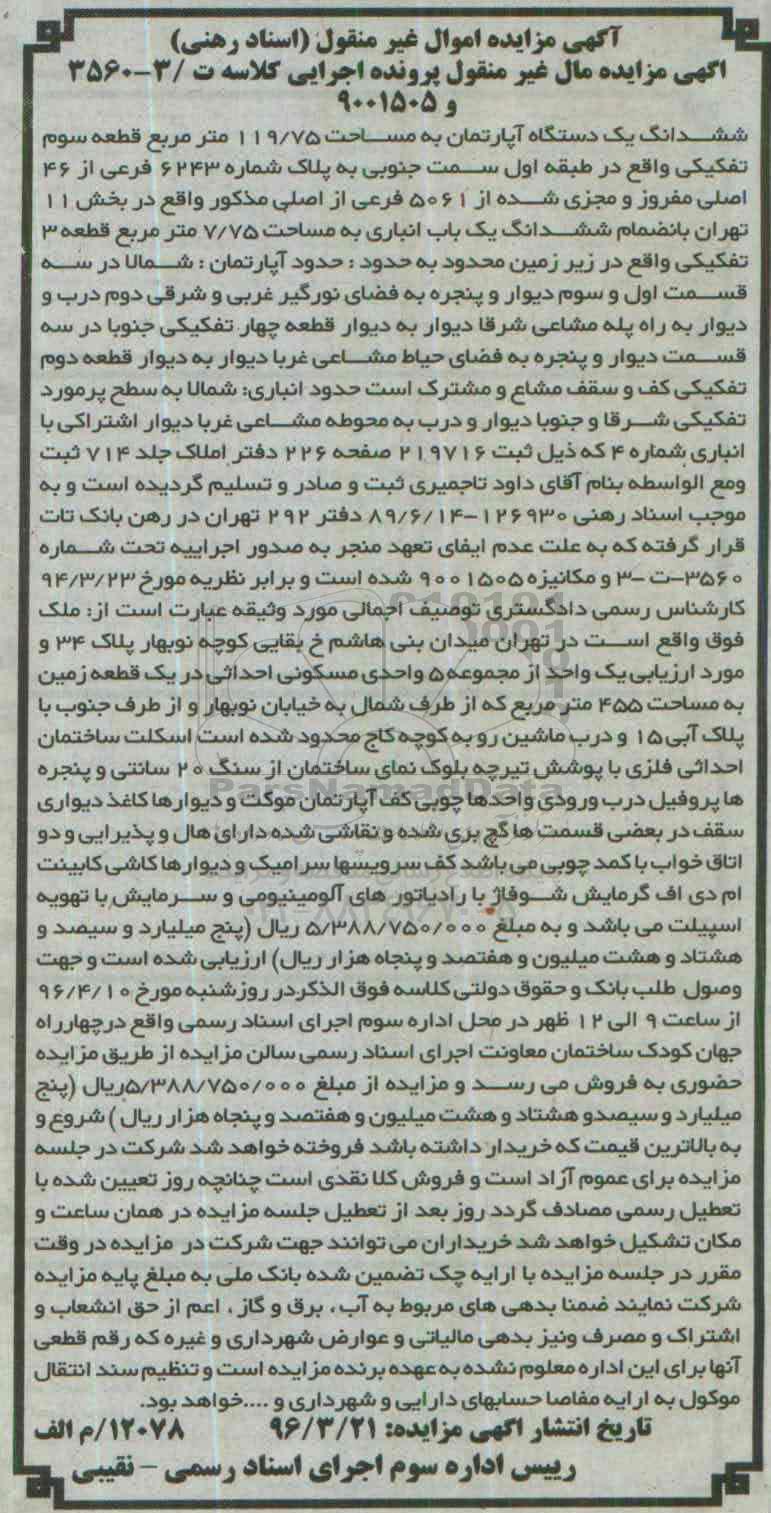 آگهی مزایده اموال غیر منقول (اسناد رهنی)
اگهی مزایده مال غیر منقول پرونده اجرایی کلاسه ت /۳-۳۵۶۰
و ۹۰۰۱۵۰۵
ششدانگ یک دستگاه آپارتمان به مساحت ۱۱۹/۷۵ متر مربع قطعه سوم
تفکیکی واقع در طبقه اول سمت جنوبی به پلاک شماره ۶۲۴۳ فرعی از ۴۶
اصلی مفروز و مجزی شده از ۵۰۶۱ فرعی از اصلی مذکور واقع در بخش ۱۱
تهران بانضمام ششدانگ یک باب انباری به مساحت ۷/۷۵ متر مربع قطعه ۳
تفکیکی واقع در زیر زمین محدود به حدود : حدود آپارتمان : شمالا در سه
قسمت اول و سوم دیوار و پنجره به فضای نورگیر غربی و شرقی دوم درب و
دیوار به راه پله مشاعی شرقا دیوار به دیوار قطعه چهار تفکیکی جنوبا در سه
قسمت دیوار و پنجره به فضای حیاط مشاعی غربا دیوار به دیوار قطعه دوم
تفکیکی کف و سقف مشاع و مشترک است حدود انباری: شمالا به سطح پرمورد
تفکیکی شرقا و جنوبا دیوار و درب به محوطه مشاعی غربا دیوار اشتراکی با
انباری شماره ۴ که ذیل ثبت ۲۱۹۷۱۶ صفحه ۲۲۶ دفتر املاک جلد ۷۱۴ ثبت
ومع الواسطه بنام آقای داود تاجمیری ثبت و صادر و تسلیم گردیده است و به
موجب اسناد رهنی ۱۲۶۹۳۰-۸۹/۶/۱۴ دفتر ۲۹۲ تهران در رهن بانک تات
قرار گرفته که به علت عدم ایفای تعهد منجر به صدور اجراییه تحت شماره
۳۵۶۰-ت -۳ و مکانیزه ۹۰۰۱۵۰۵ شده است و برابر نظریه مورخ ۹۴/۳/۲۳
کارشناس رسمی دادگستری توصیف اجمالی مورد وثیقه عبارت است از: ملک
فوق واقع است در تهران میدان بنی هاشم خ بقایی کوچه نوبهار پلاک ۳۴ و
مورد ارزیابی یک واحد از مجموعه ۵ واحدی مسکونی احداثی در یک قطعه زمین
به مساحت ۴۵۵ متر مربع که از طرف شمال به خیابان نوبهار و از طرف جنوب با
پلاک آبی ۱۵ و درب ماشین رو به کوچه کاج محدود شده است اسکلت ساختمان
احداثی فلزی با پوشش تیرچه بلوک نمای ساختمان از سنگ ۲۰ سانتی و پنجره
ها پروفیل درب ورودی واحدها چوبی کف آپارتمان موکت و دیوارها کاغذ دیواری
سقف در بعضی قسمت ها گچ بری شده و نقاشی شده دارای هال و پذیرایی و دو
اتاق خواب با کمد چوبی می باشد کف سرویسها سرامیک و دیوارها کاشی کابینت
ام دی اف گرمایش شوفاژ با رادیاتور های آلومینیومی و سرمایش با تهویه
اسپیلت می باشد و به مبلغ ۵/۳۸۸/۷۵۰/۰۰۰ ریال (پنج میلیارد و سیصد و
هشتاد و هشت میلیون و هفتصد و پنجاه هزار ریال) ارزیابی شده است و جهت
وصول طلب بانک و حقوق دولتی کلاسه فوق الذکر در روز شنبه مورخ ۹۶/۴/۱۰
از ساعت ۹ الی ۱۲ ظهر در محل اداره سوم اجرای اسناد رسمی واقع درچهارراه
جهان کودک ساختمان معاونت اجرای اسناد رسمی سالن مزایده از طریق مزایده
حضوری به فروش می رسد و مزایده از مبلغ ۵/۳۸۸/۷۵۰/۰۰۰ریال (پنج
میلیارد و سیصدو هشتاد و هشت میلیون و هفتصد و پنجاه هزار ریال ) شروع و
به بالاترین قیمت که خریدار داشته باشد فروخته خواهد شد شرکت در جلسه
مزایده برای عموم آزاد است و فروش کلا نقدی است چنانچه روز تعیین شده با
تعطیل رسمی مصادف گردد روز بعد از تعطیل جلسه مزایده در همان ساعت و
مکان تشکیل خواهد شد خریداران می توانند جهت شرکت در مزایده در وقت
مقرر در جلسه مزایده با ارایه چک تضمین شده بانک ملی به مبلغ پایه مزایده
شرکت نمایند ضمنا بدهی های مربوط به آب ، برق و گاز ، اعم از حق انشعاب و
اشتراک و مصرف ونیز بدهی مالیاتی و عوارض شهرداری و غیره که رقم قطعی
آنها برای این اداره معلوم نشده به عهده برنده مزایده است و تنظیم سند انتقال
موکول به ارایه مفاصا حسابهای دارایی و شهرداری و ....خواهد بود.
تاریخ انتشار اگهی مزایده: ۹۶/۳/۲۱ ۱۲۰۷۸/م الف
رییس اداره سوم اجرای اسناد رسمی – نقیبی
ParsNamadData